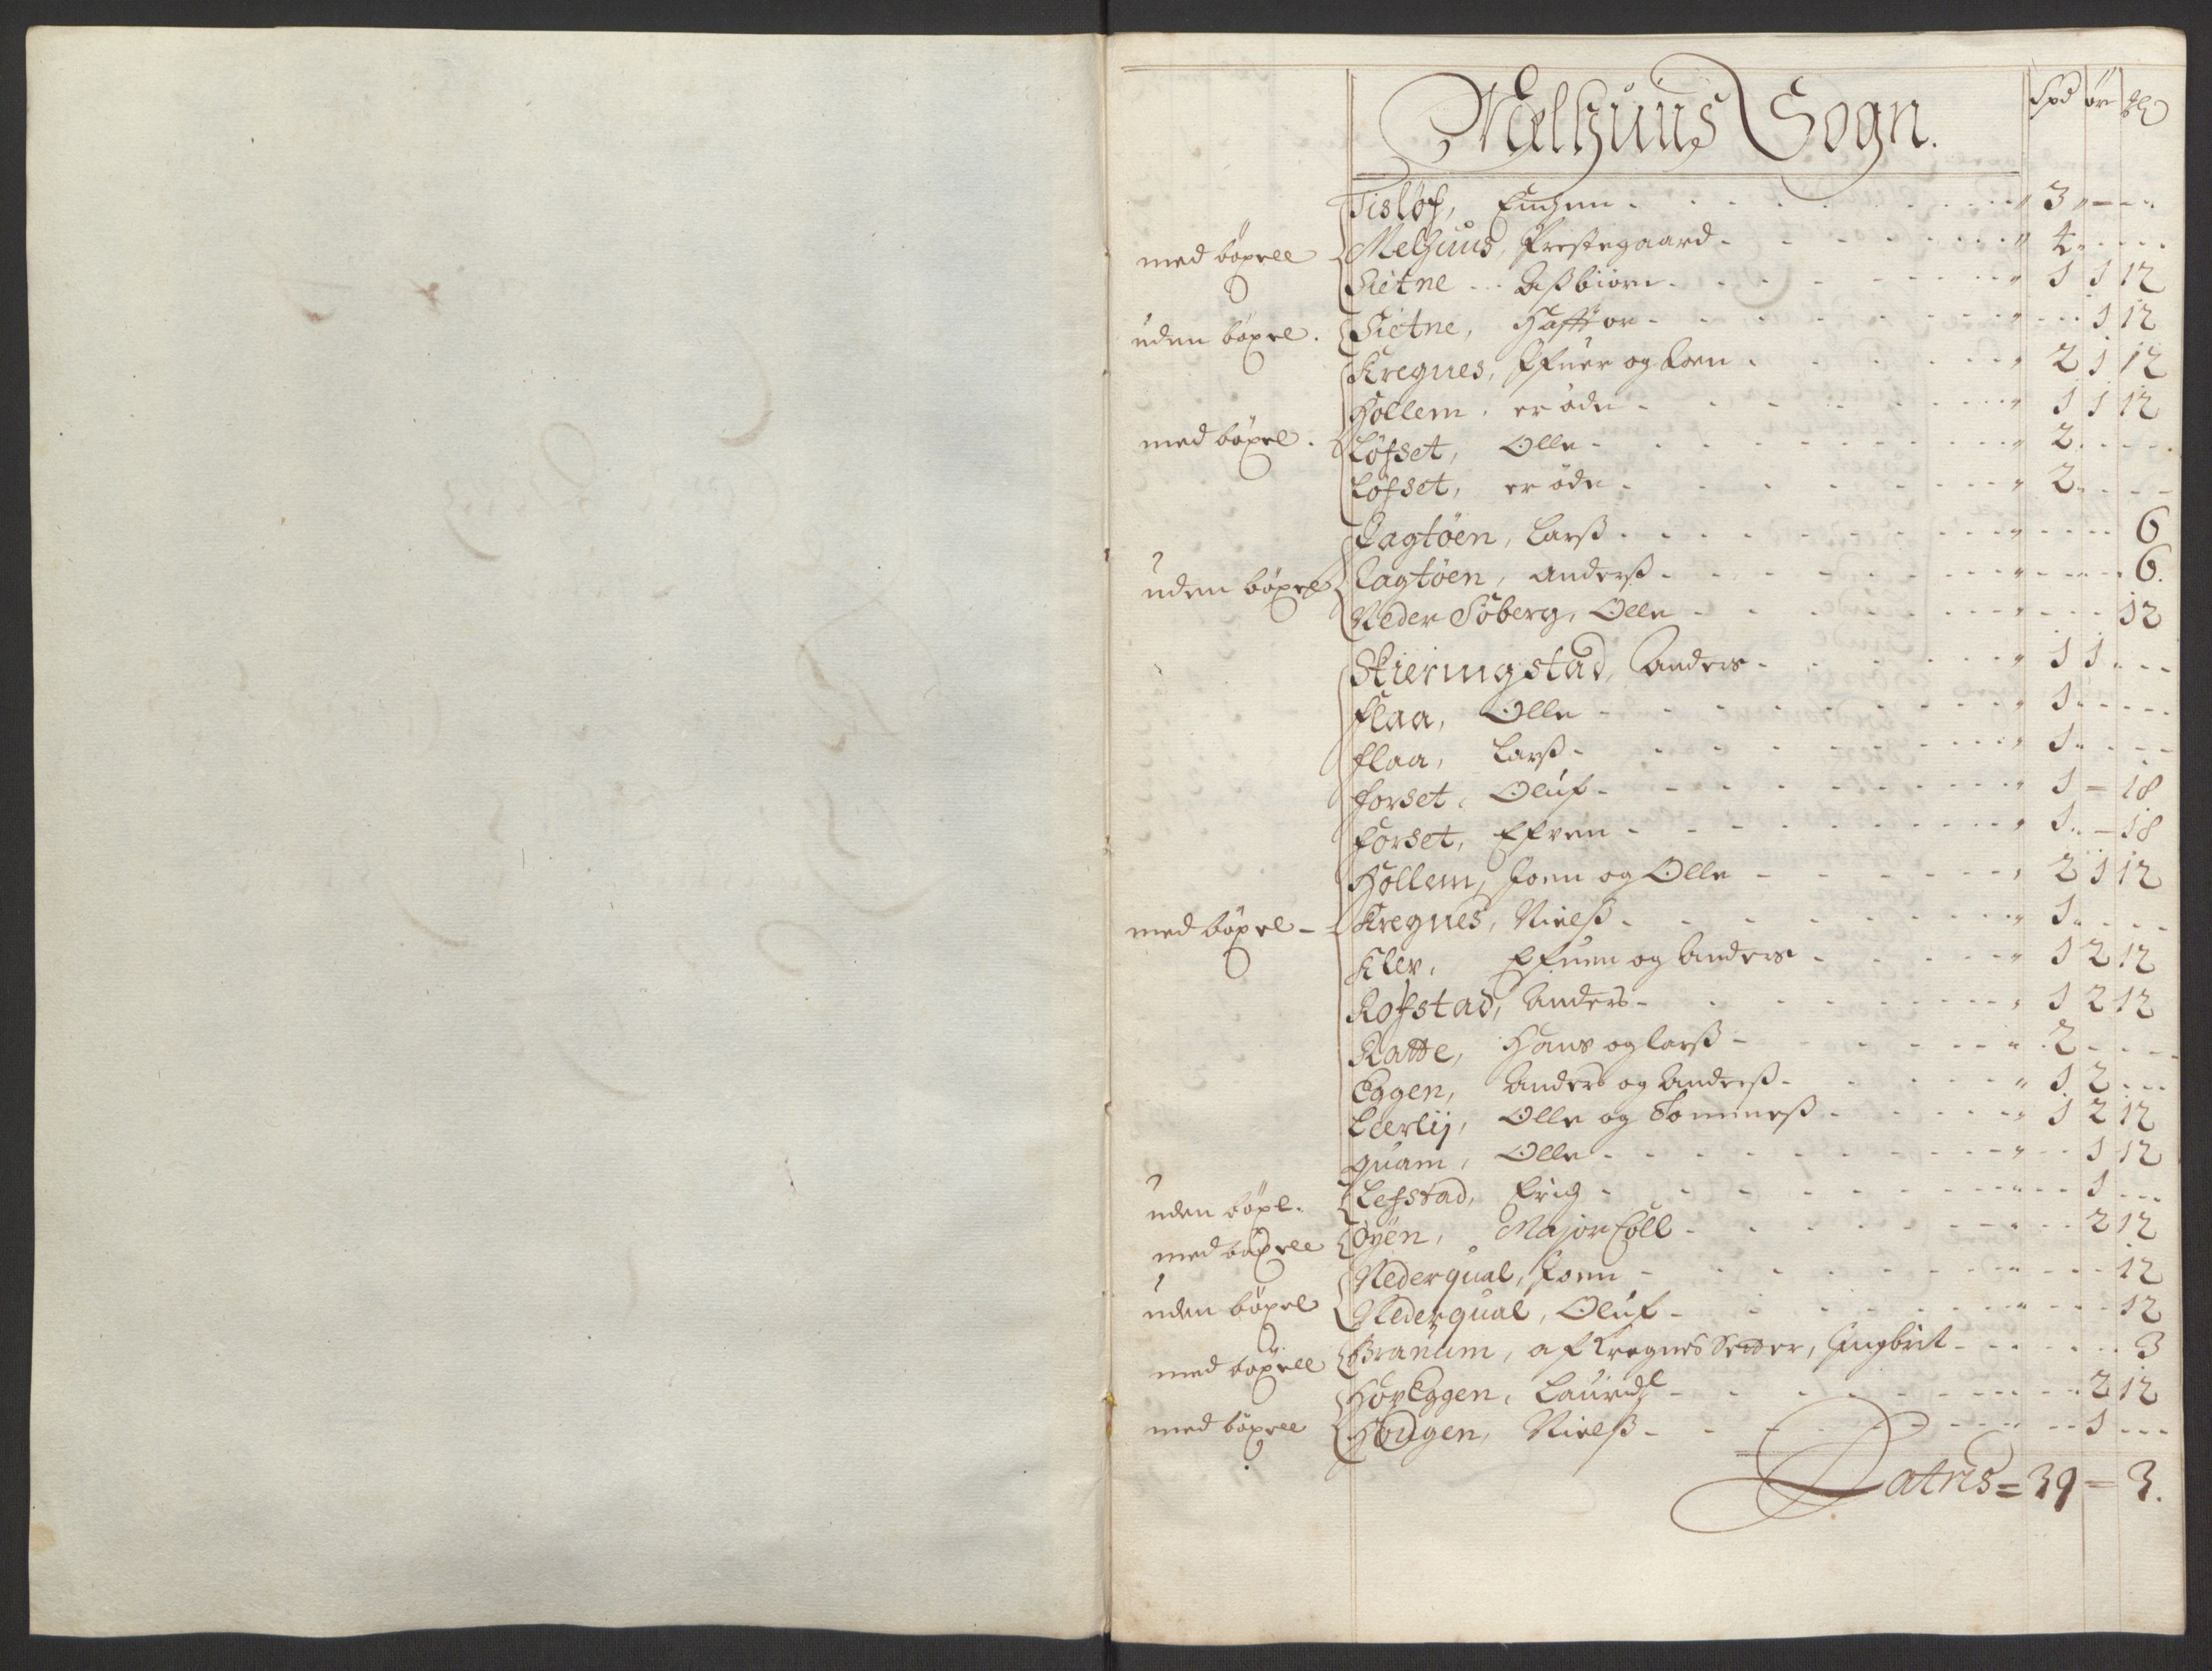 Melhuus Sogn. Spd ör
Tisløf, 3
med böxell Melhuus, Prestegaard 4
Sietne Aßbiörn 1 1 12
uden böxel. Sietne, Haffor 1 12
Kregnes, og Joen 2 1 12
Hollem, er öde 1 1 12
med böxel. Löfset, Olle 2
Löfset, er öde 2
Lagtöen, Larß 6
uden böxel Lagtöen, Anderß 6.
Neder Söberg, Olle 12
Skieringstad, Anders 1 1
Flaa, Olle 1
Flaa, Larß 1
Forset, Oluf 1 = 18
Forset, Efven 1 - 18
Hollem, Joen og Olle 2 1 12
med böxel - Kregnes, Nielß 1
Klev, og Anders 1 2 12
Rofstad, Anders 1 2 12
Ratte, Hans og Larß 2
Eggen, Anders og Anderß 1 2
Leerlij, Olle og Tommeß 1 2 12
quam, Olle 1 12
uden böxl. Lefstad, Erich 1
med böxell Öyen, Major Coll 2 12
Nederqual, Joen 12
uden böxel Nederqual, Oluf 12
med böxell Branum, af Kregnes Setter, Ingbrit 3
HovEggen, Lauridß 2 12
med böxell Hougen, Nielß 1
Latris = 39 = 3.